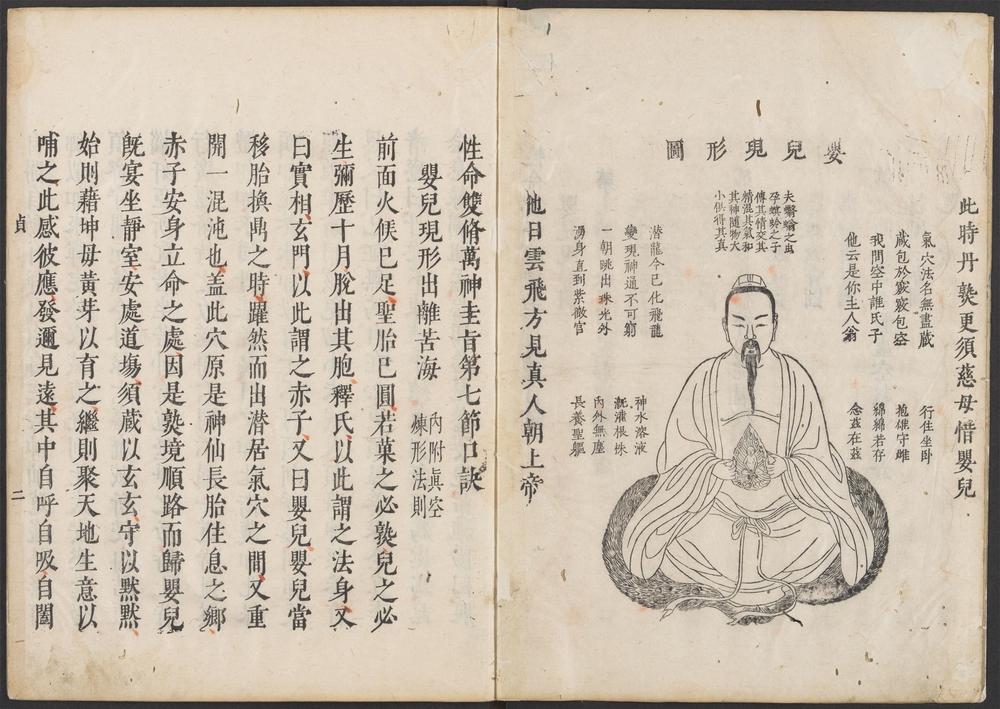 嬰兒現形圖
此時丹熟更須慈母惜嬰兒
氣穴法名無盡藏
藏包於竅竅包容
我問空中誰氏子
他云是你主人翁
行住坐卧
抱雄守雌
綿綿若存
念茲在茲
夫蜾蠃之蟲
孕螟蛉之子
傳其情交其
精混其氣和
其神隨物大
小俱得其真
潛龍今已化飛龍
變現神通不可窮
一朝跳出珠光外
湧身直到紫微宮
神水溶液
溉灌根株
內外無塵
長養聖軀
他日雲飛方見真人朝上帝
性命雙脩萬神圭旨第七節口訣
嬰兒現形出離苦海
內附真空
煉形法則
前面火候已足聖胎已圓若菓之必熟兒之必
生彌歷十月脫出其胞釋氏以此謂之法身又
曰實相玄門以此謂之赤子又曰嬰兒嬰兒當
移胎換鼎之時躍然而出潛居氣穴之間又重
開一混沌也盖此穴原是神仙長胎住息之鄉
赤子安身立命之處因是熟境順路而歸嬰兒
既宴坐靜室安處道塲須藏以玄玄守以黙黙
始則藉坤母黃芽以育之繼則聚天地生意以
哺之此感彼應發邇見遠其中自呼自吸自闔
貞
二